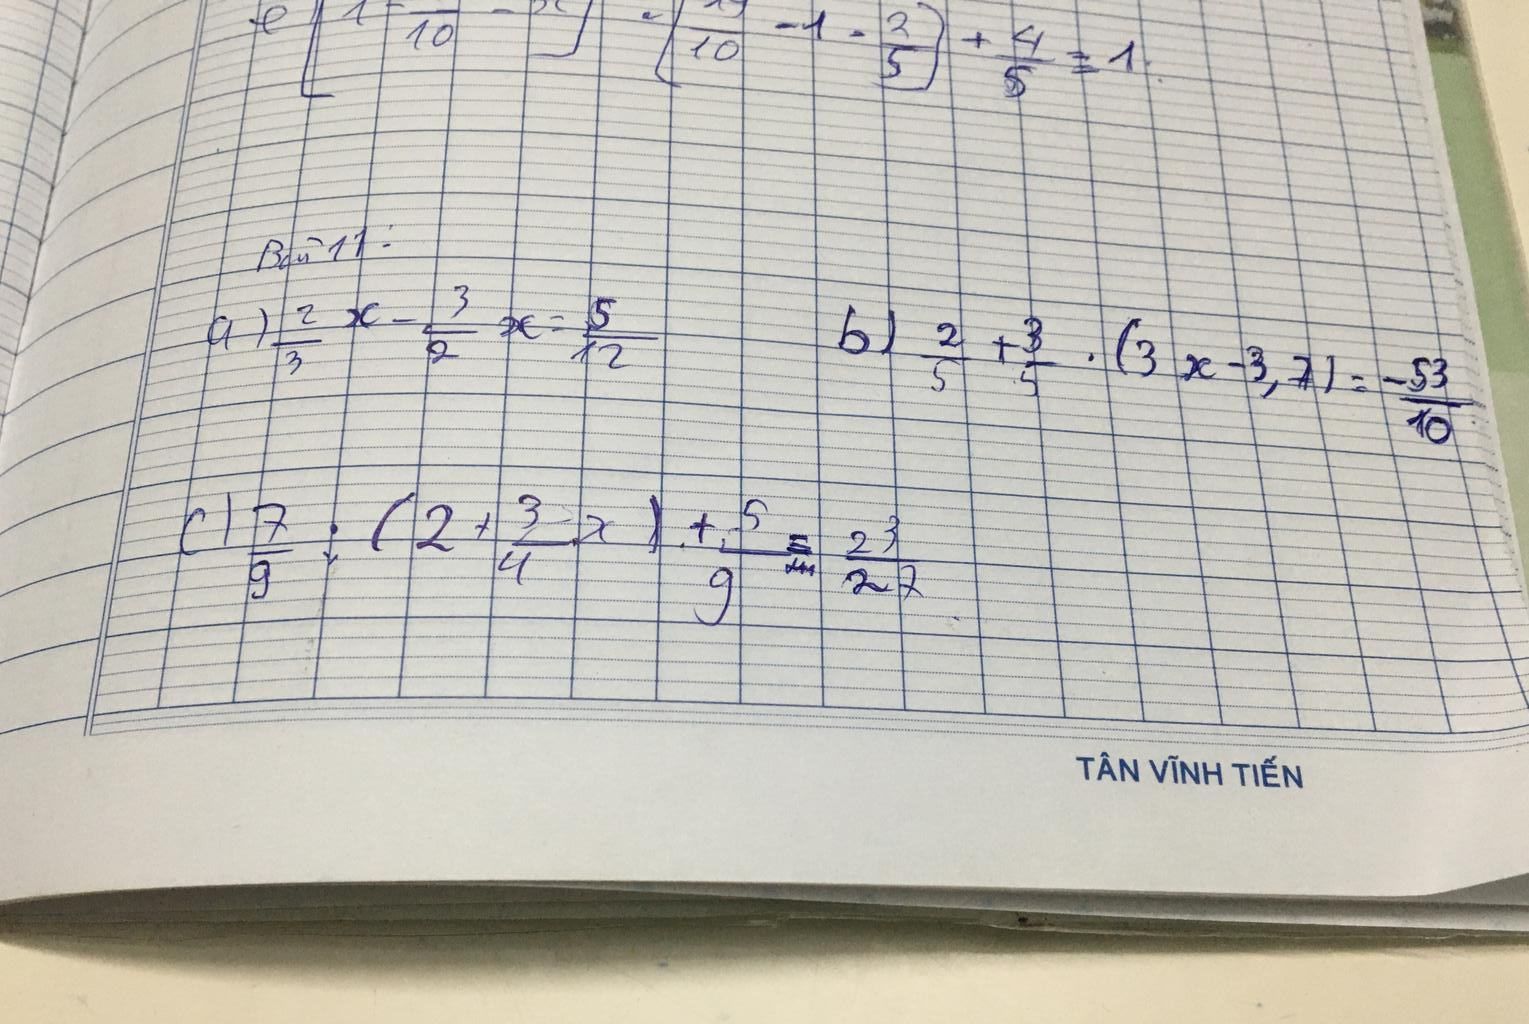 e [1 - /10 - x] . (19/10 - 1 - 2/5) + 4/5 = 1
Bài 11:
a) 2/3 x - 3/2 x = 5/12
b) 2/5 + 3/5 . (3x - 3,7) = -53/10
c) 7/9 : (2 + 3/4 x) + 5/9 = 23/27
TÂN VĨNH TIẾN